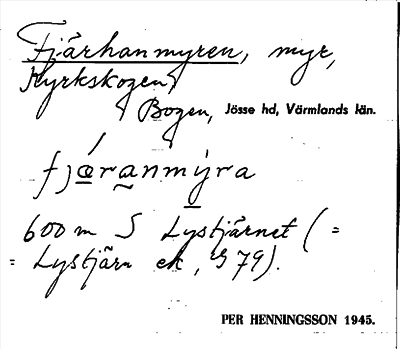 Fjärhanmyren, myr,
Kyrkskogen
Bogen, Jösse hd, Värmlands län.
fjǽranmýra
600 m S Lystjärnet (=
= Lystjärn ek, 79).
PER HENNINGSSON 1945.